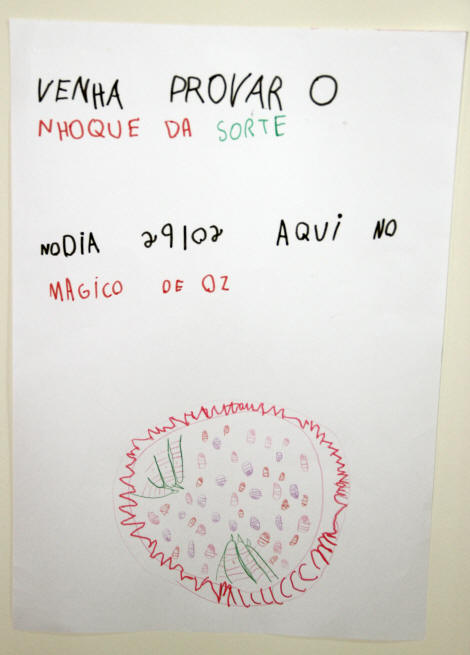 VENHA PROVAR O
NHOQUE DA SORTE
NO DIA 29/02 AQUI NO
MAGICO DE OZ